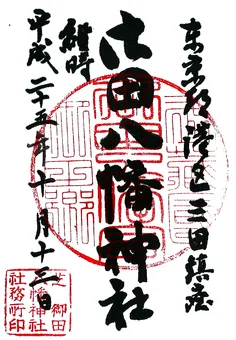 東京都港區三田鎮座
御田八幡神社
維時
平成二十五年十月十三日
芝御田
八幡神社
社務所印